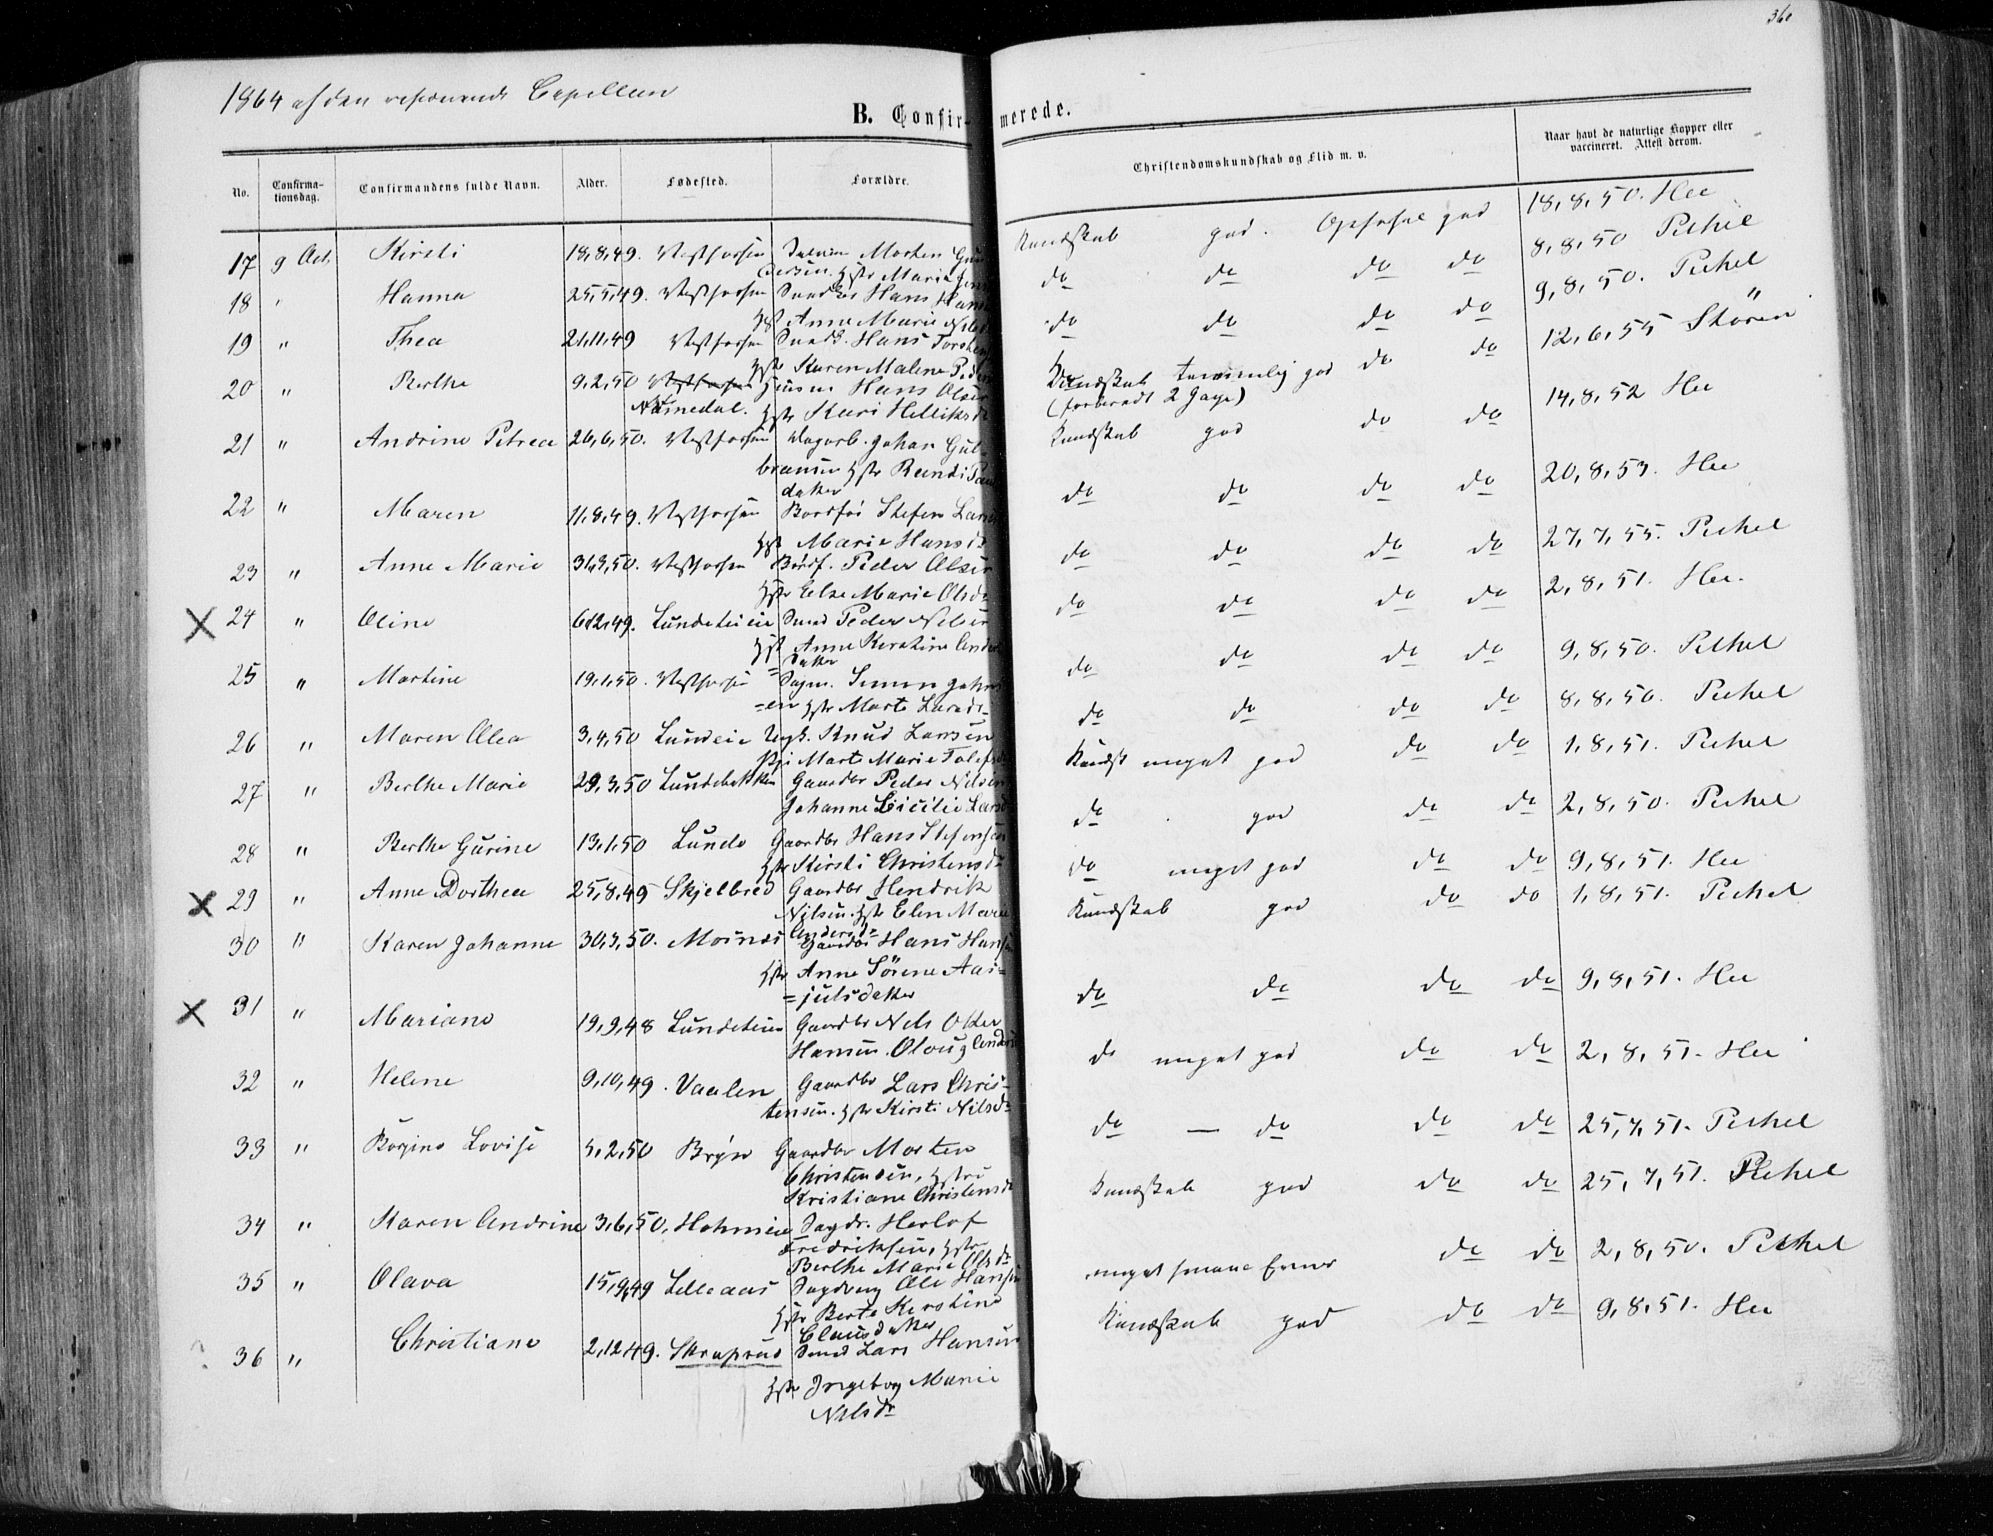 36
1864 af den residerende Capellan
B. Confirmerede.
No. Confirmationsdag. Confirmandens fulde Navn. Alder. Fødested. Forældre. Christendomskundskab og Flid m. v. Naar havt de naturlige Kopper eller vaccineret. Attest derom.
17 9 Oct. Kirsti 18,8,49. Vestfossen Morten Gundersen. Hstr Maria Kundskab god. Opførsel god 18,8,50. Hee
18 " Hanna 25,5,49. Vestfossen Snedker Hans Hansen Hst Anne Marie Nilsd do do do do 8,8,50 Pichel
19 " Thea 21,11,49 Vestfossen Snedk. Hans Torsten Hstr Karen Malene do do do do 9,8,50. Pichel
20 " Berthe 9,2,50 Vestfossen Næsmedal. Husm Hans Olsen Hstr Kari Helliksdr Kundskab temmelig god (forberedt 2 Gage) do do 12,6,55 Stören
21 " Andrine Petrea 26,6,50. Vestfossen Dagarb. Johan Gulbransen Hstr Randi datter Kundskab god do do 14,8,52 Hee
22 " Maren 11,8,49. Vestfossen Bordfør Stefen Larsen Hst Marie Hansdr do do do do 20,8,53. Hee
23 " Anne Marie 31,3,50. Vestfossen Bordf. Peder Olsen Hstr Else Marie Olsdr do do do do 27,7,55. Pichel
X 24 " Oline 6,12,49. Lundeteien Smed Peder Nilsen Hst Anne Kirstine Andersdatter do do do do 2,8,51. Hee.
25 " Martine 19,1,50. Vestfossen Sagm. Simon Johnsen Hstr Marte Larsdr do do do do 9,8,50. Pichel
26 " Maren Olea 3,4,50 Lundeie Ungk. Knud Larsen Pi Marte Marie Tolefsdr do do do do 8,8,50. Pichel
27 " Berthe Marie 29,3,50 Lundebakken Gaardbr Peder Nilsen Johanne Cicilie Larsdr Kundsk meget god do do 1,8,51. Pichel
28 " Berthe Gurine 13,1,50 Lunde Gaardbr Hans Stefensen Hstr Kirsti Christensdr do god do do 2,8,50. Pichel
X 29 " Anne Dorthea 25,8,49 Skjelbred Gaardbr Hendrik Nilsen. Hstr Elen Marie Andersdr do meget god do do 9,8,51. Hee
30 " Karen Johanne 30,3,50. Moinæs Gaardbr Hans Hansen Hstr Anne Sörine Aasjulsdatter Kundskab god do do 1,8,51. Pichel
X 31 " Mariane 19,9,48 Lundeteien Gaardbr Nels Otter Hansen. Oloug Anders do do do do 9,8,51. Hee
32 " Helene 9,10,49. Vaalen Gaardbr Lars Christensen. Hstr Kirsti Nilsdr do meget god do do 2,8,51. Hee
33 " Regine Lovise 5,2,50 Bryn Gaardbr Morten Christensen, Hstru Kristiane Christensdr do — do do do 25,7,51. Pichel
34 " Karen Andrine 3,6,50. Hohmeie Sagdr. Herlof Fredriksen, Hstr Berthe Marie Olsdr Kundskab god do do 25,7,51. Pichel
35 " Olava 15,9,49 Lilleaas Ole Hansen Hstr Berte Kirstine Clausdatter meget smaae Evner do do 2,8,50. Pichel
36 " Christiane 2,12,49. Skruprud Smed Lars Hansen Hstr Ingeborg Marie Nilsdr Kundskab god do do 9,8,51. Hee